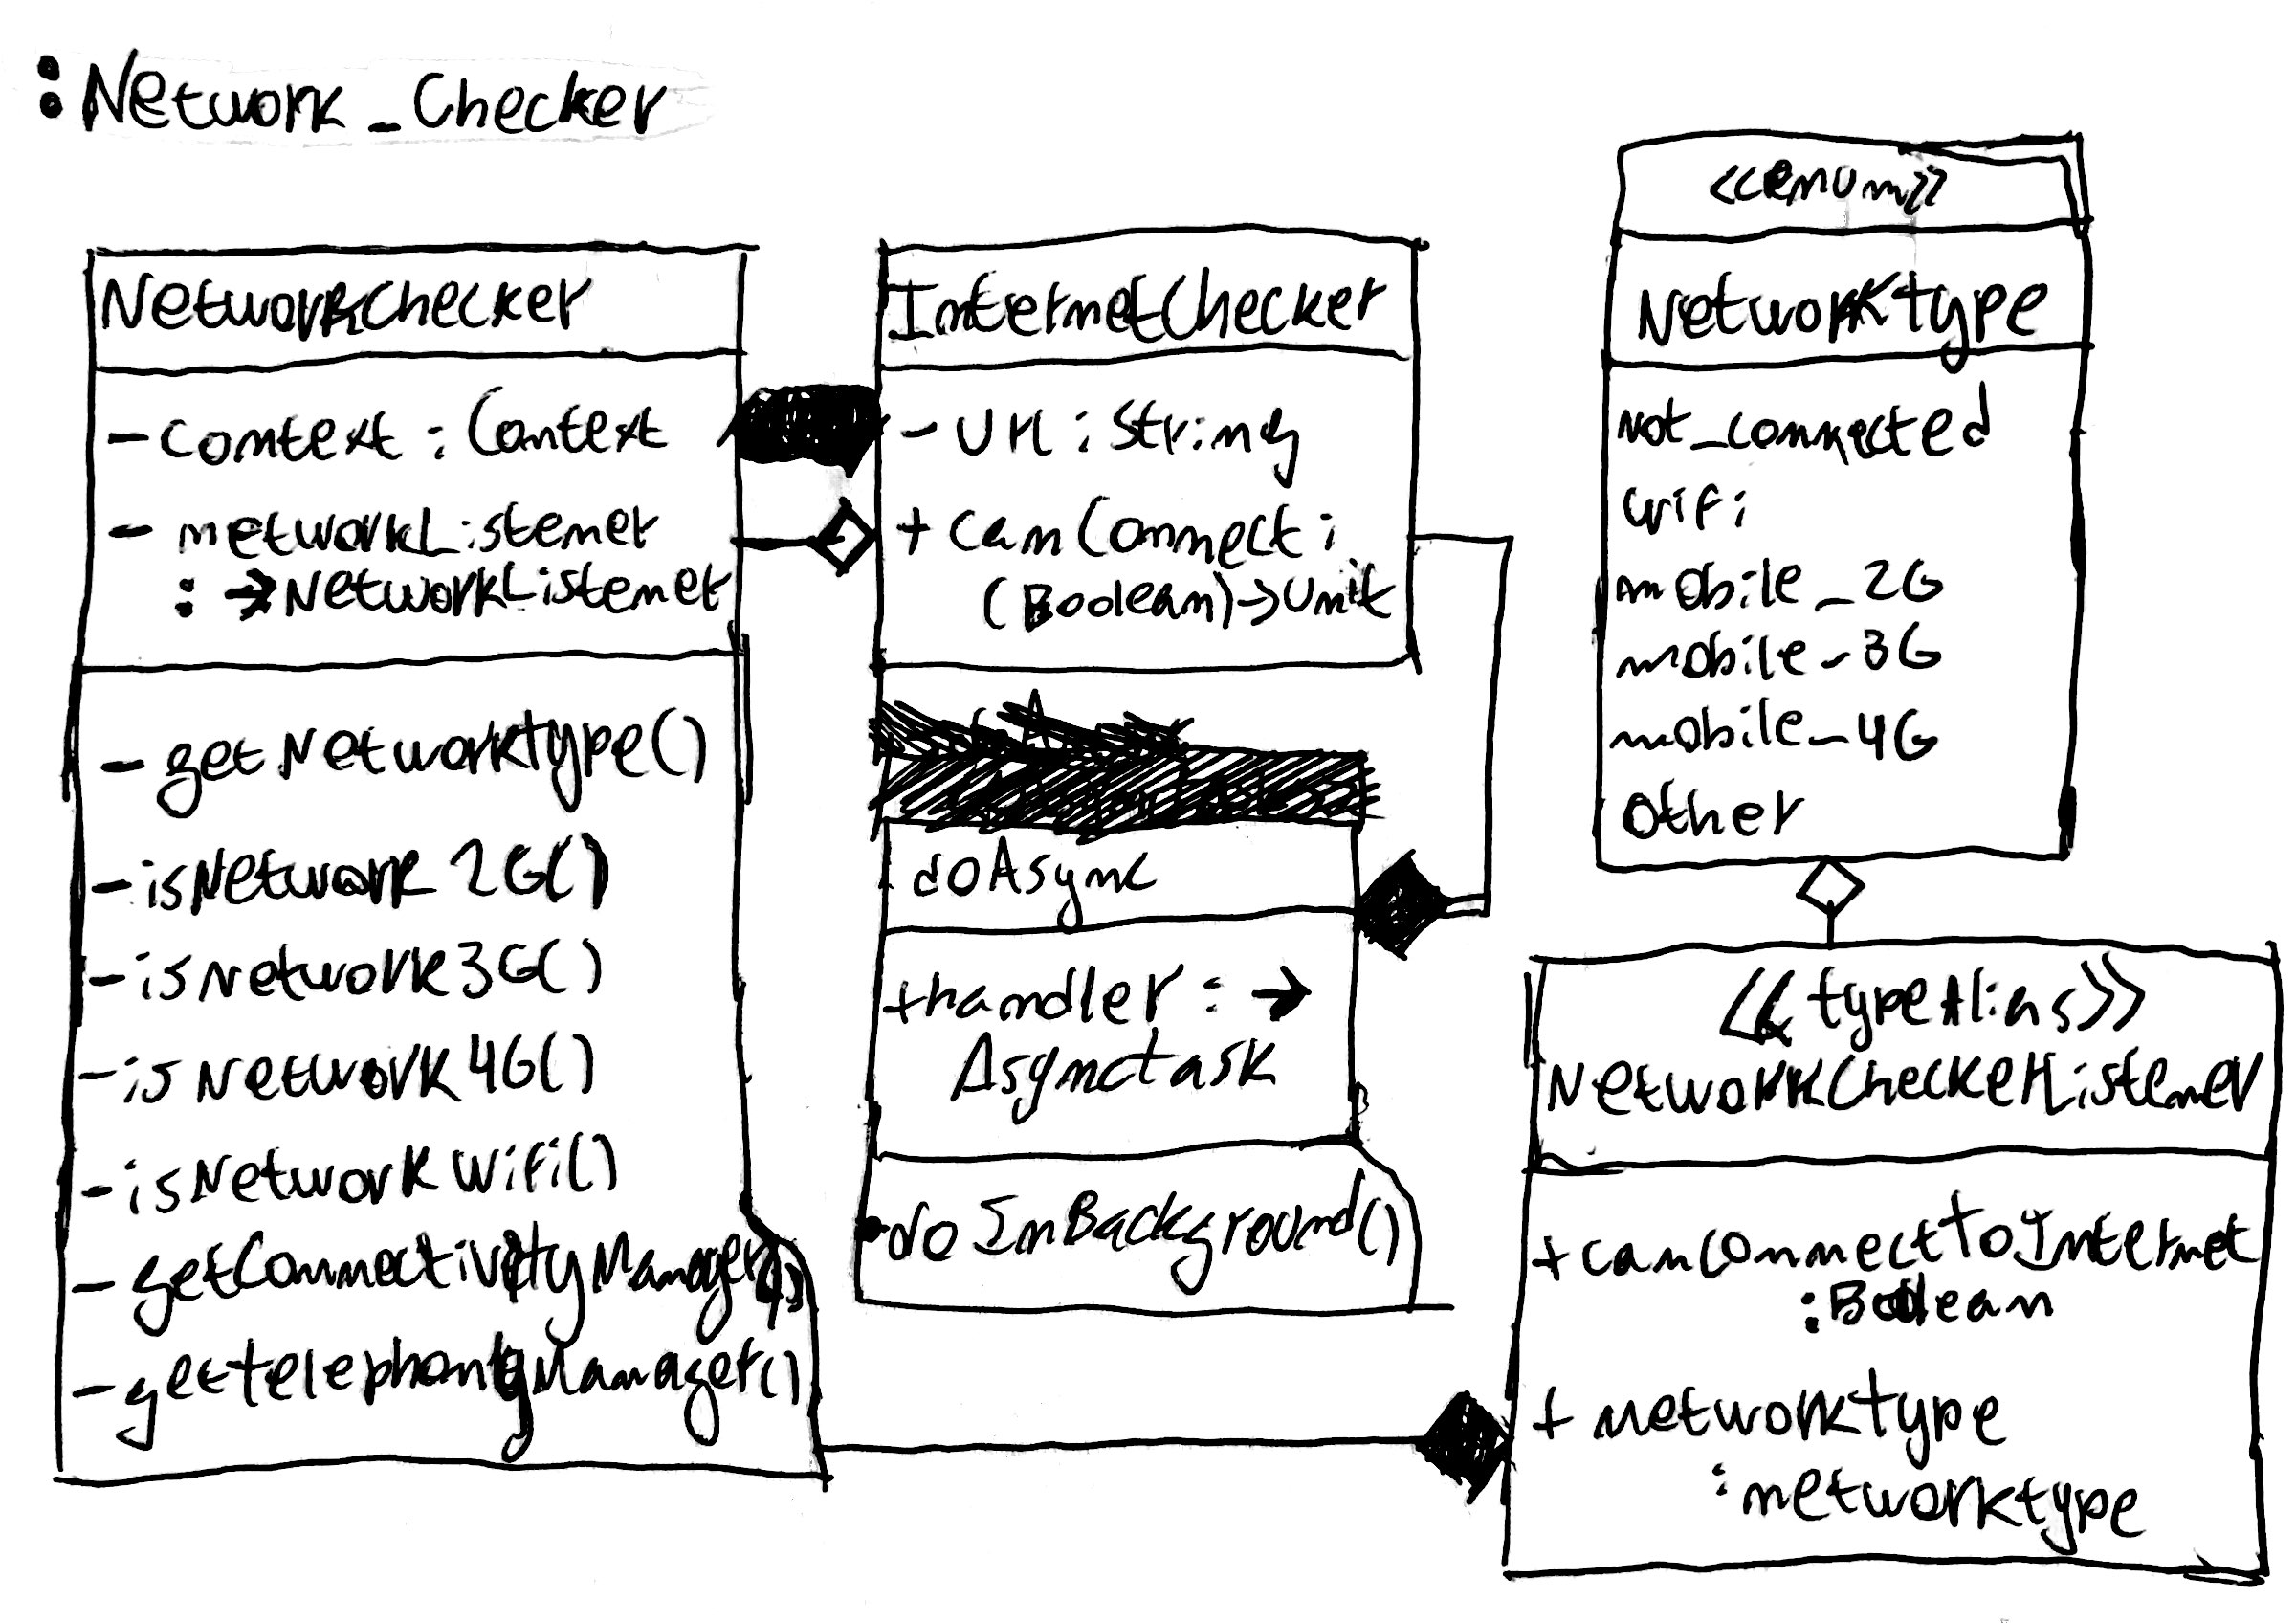 :Network_Checker
NetworkChecker
- context : Context
- networkListener
: → NetworkListener
- getNetworktype()
- isNetwork 2G()
- isNetwork3G()
- isNetwork4G()
- isNetworkWifi()
- getConnectivityManager()
- gettelephonyManager()
InternetChecker
- Url : String
+ canConnect :
(Boolean)→Unit
doAsync
+handler : →
Asynctask
doInBackground()
<<enum>>
Networktype
Not_connected
wifi
mobile_2G
mobile_3G
mobile_4G
other
<<typeAlias>>
NetworkCheckerListener
+canConnectToInternet
:Boolean
+ networktype
:networktype